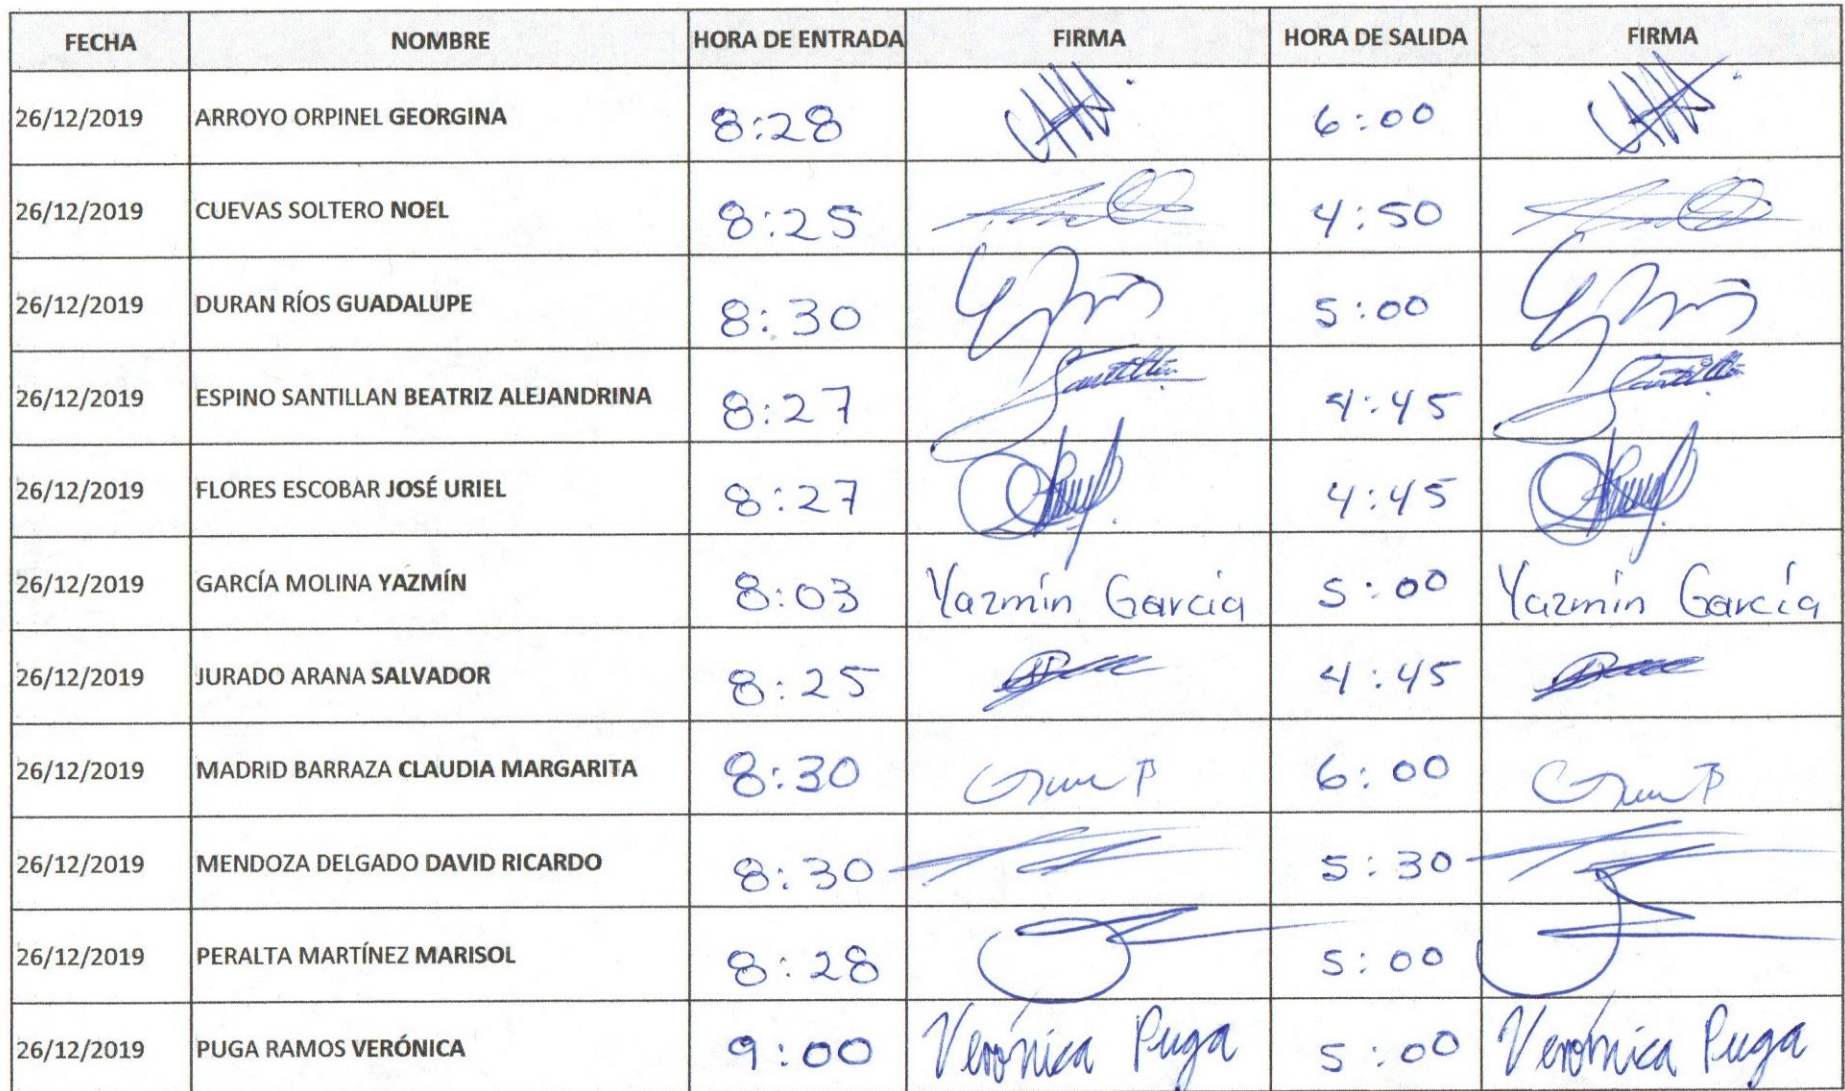 FECHA NOMBRE HORA DE ENTRADA FIRMA HORA DE SALIDA FIRMA
26/12/2019 ARROYO ORPINEL GEORGINA 8:28 6:00
26/12/2019 CUEVAS SOLTERO NOEL 8:25 4:50
26/12/2019 DURAN RÍOS GUADALUPE 8:30 5:00
26/12/2019 ESPINO SANTILLAN BEATRIZ ALEJANDRINA 8:27 4:45
26/12/2019 FLORES ESCOBAR JOSÉ URIEL 8:27 4:45
26/12/2019 GARCÍA MOLINA YAZMÍN 8:03 Yazmín García 5:00 Yazmín García
26/12/2019 JURADO ARANA SALVADOR 8:25 4:45
26/12/2019 MADRID BARRAZA CLAUDIA MARGARITA 8:30 6:00
26/12/2019 MENDOZA DELGADO DAVID RICARDO 8:30 5:30
26/12/2019 PERALTA MARTÍNEZ MARISOL 8:28 5:00
26/12/2019 PUGA RAMOS VERÓNICA 9:00 Verónica Puga 5:00 Verónica Puga